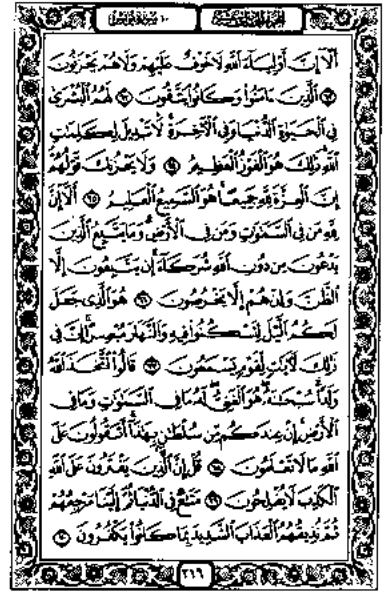 الجزء الحادي عشر
١٠ سورة يونس
أَلَا إِنَّ أَوْلِيَاءَ اللَّهِ لَا خَوْفٌ عَلَيْهِمْ وَلَا هُمْ يَحْزَنُونَ
﴿٦٢﴾ الَّذِينَ ءَامَنُوا وَكَانُوا يَتَّقُونَ ﴿٦٣﴾ لَهُمُ الْبُشْرَىٰ
فِي الْحَيَوٰةِ الدُّنْيَا وَفِي الْآخِرَةِ لَا تَبْدِيلَ لِكَلِمَٰتِ
اللَّهِ ذَٰلِكَ هُوَ الْفَوْزُ الْعَظِيمُ ﴿٦٤﴾ وَلَا يَحْزُنكَ قَوْلُهُمْ
إِنَّ الْعِزَّةَ لِلَّهِ جَمِيعًا هُوَ السَّمِيعُ الْعَلِيمُ ﴿٦٥﴾ أَلَا إِنَّ
لِلَّهِ مَن فِي السَّمَٰوَٰتِ وَمَن فِي الْأَرْضِ وَمَا يَتَّبِعُ الَّذِينَ
يَدْعُونَ مِن دُونِ اللَّهِ شُرَكَاءَ إِن يَتَّبِعُونَ إِلَّا
الظَّنَّ وَإِنْ هُمْ إِلَّا يَخْرُصُونَ ﴿٦٦﴾ هُوَ الَّذِي جَعَلَ
لَكُمُ الَّيْلَ لِتَسْكُنُوا فِيهِ وَالنَّهَارَ مُبْصِرًا إِنَّ فِي
ذَٰلِكَ لَآيَٰتٍ لِّقَوْمٍ يَسْمَعُونَ ﴿٦٧﴾ قَالُوا اتَّخَذَ اللَّهُ
وَلَدًا سُبْحَٰنَهُ هُوَ الْغَنِيُّ لَهُ مَا فِي السَّمَٰوَٰتِ وَمَا فِي
الْأَرْضِ إِنْ عِندَكُم مِّن سُلْطَٰنٍ بِهَٰذَا أَتَقُولُونَ عَلَى
اللَّهِ مَا لَا تَعْلَمُونَ ﴿٦٨﴾ قُلْ إِنَّ الَّذِينَ يَفْتَرُونَ عَلَى اللَّهِ
الْكَذِبَ لَا يُفْلِحُونَ ﴿٦٩﴾ مَتَٰعٌ فِي الدُّنْيَا ثُمَّ إِلَيْنَا مَرْجِعُهُمْ
ثُمَّ نُذِيقُهُمُ الْعَذَابَ الشَّدِيدَ بِمَا كَانُوا يَكْفُرُونَ ﴿٧٠﴾
٢١٦